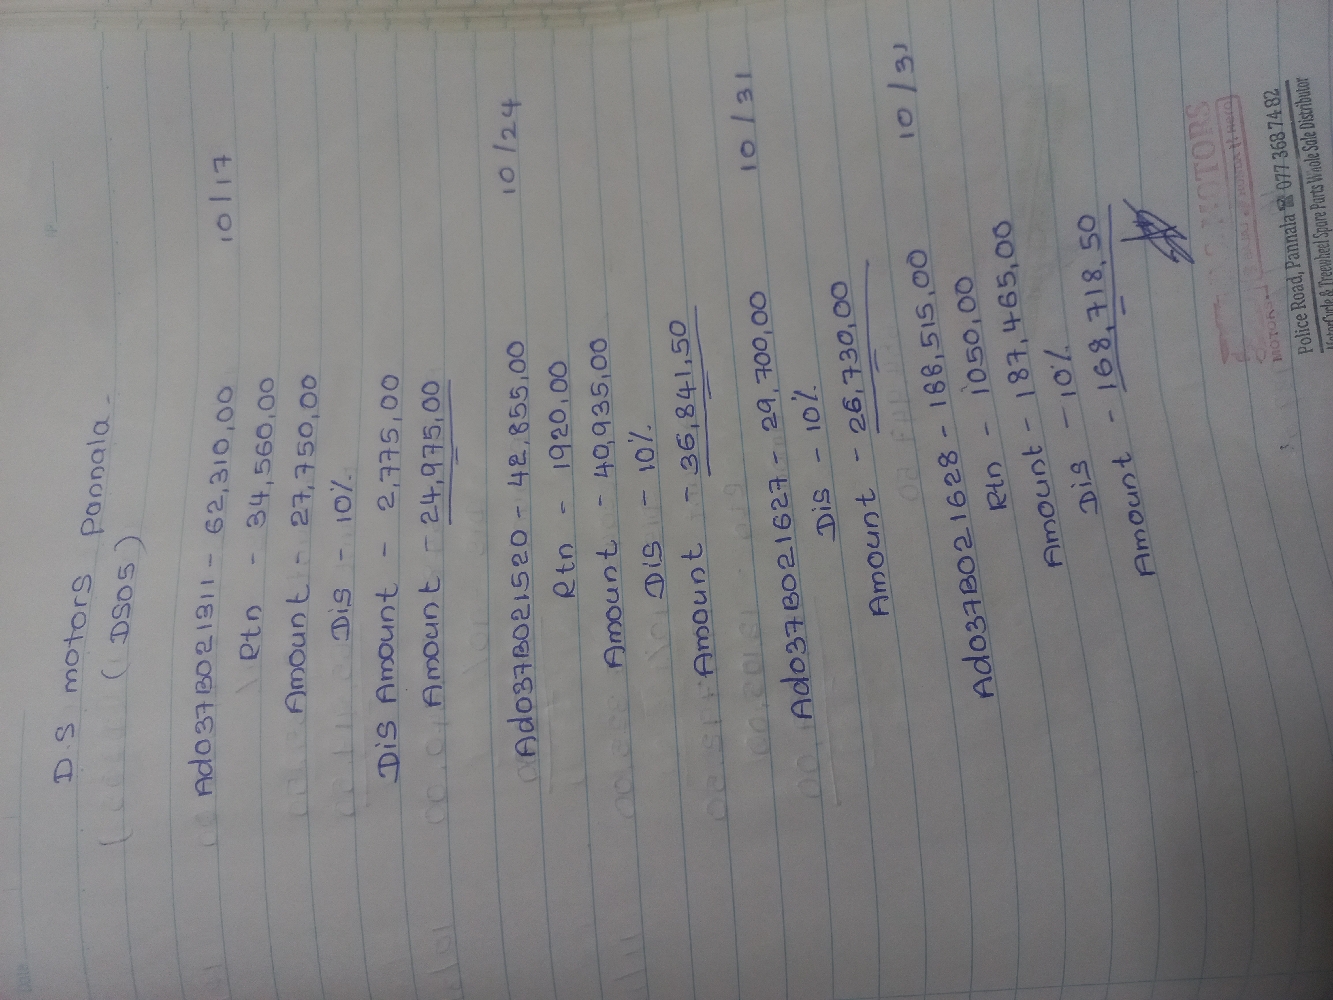 D.S motors pannala.
(DS05)
Ad037B021311 - 62,310,00 10/17
Rtn - 34,560,00
Amount - 27,750,00
Dis - 10%
Dis Amount - 2,775,00
Amount - 24,975,00
Ad037B021520 - 42,855,00 10/24
Rtn - 1920,00
Amount - 40,935,00
Dis - 10%
Amount - 36,841,50
Ad037B021627 - 29,700,00 10/31
Dis - 10%
Amount - 26,730,00
Ad037B021628 - 188,515,00 10/31
Rtn - 1050,00
Amount - 187,465,00
Dis - 10%
Amount - 168,718,50
MOTORS
Police Road, Pannala ☎ 077 368 74 82
MotorCycle & Treewheel Spare Parts Whole Sale Distributor